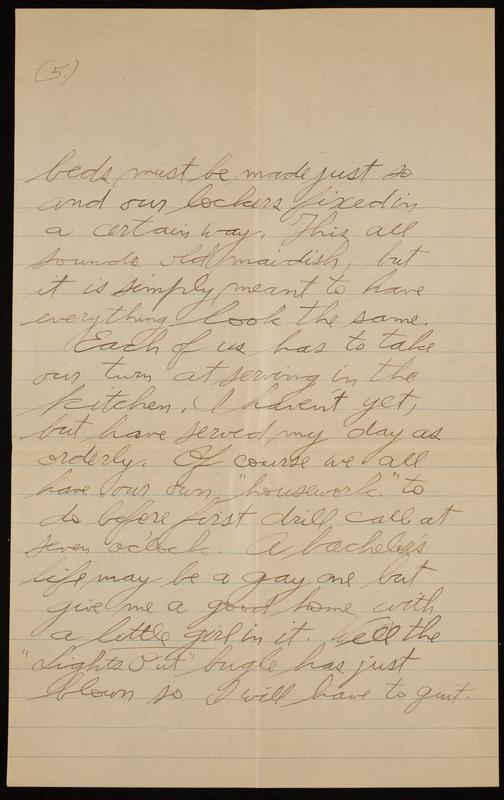 (5.)
beds must be made just so
and our lockers fixed in
a certain way. This all
sounds old maidish, but
it is simply meant to have
everything look the same.
Each of us has to take
our turn at serving in the
kitchen. I haven't yet,
but have served my day as
orderly. Of course we all
have our own "housework" to
do before first drill call at
seven o'clock. A bachelor's
life may be a gay one but
give me a good home with
a little girl in it. Well the
"Lights Out" bugle has just
blown so I will have to quit.